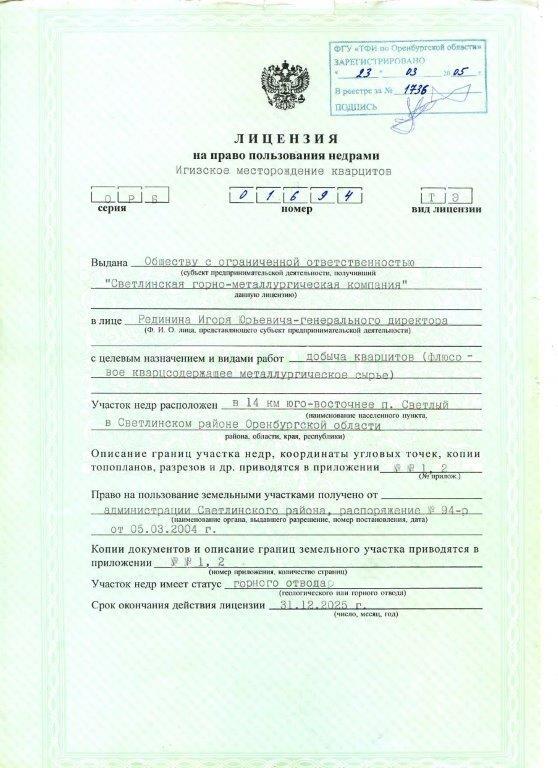 ФГУ «ТФИ по Оренбургской области»
ЗАРЕГИСТРИРОВАНО
"23" 03 2005 г
В реестре за № 1736
ПОДПИСЬ
ЛИЦЕНЗИЯ
на право пользования недрами
Игизское месторождение кварцитов
О Р Б 0 1 6 9 4 Т Э
серия номер вид лицензии
Выдана Обществу с ограниченной ответственностью
(субъект предпринимательской деятельности, получивший
"Светлинская горно-металлургическая компания"
данную лицензию)
в лице Рединина Игоря Юрьевича-генерального директора
(Ф. И. О. лица, представляющего субъект предпринимательской деятельности)
с целевым назначением и видами работ добыча кварцитов (флюсо -
вое кварцсодержащее металлургическое сырье)
Участок недр расположен в 14 км юго-восточнее п. Светлый
(наименование населенного пункта,
в Светлинском районе Оренбургской области
района, области, края, республики)
Описание границ участка недр, координаты угловых точек, копии
топопланов, разрезов и др. приводятся в приложении № № 1, 2
(№ прилож.)
Право на пользование земельными участками получено от
администрации Светлинского района, распоряжение № 94-р
(наименование органа, выдавшего разрешение, номер постановления, дата)
от 05.03.2004 г.
Копии документов и описание границ земельного участка приводятся в
приложении № № 1, 2
(номер приложения, количество страниц)
Участок недр имеет статус горного отвода
(геологического или горного отвода)
Срок окончания действия лицензии 31.12.2025 г.
(число, месяц, год)